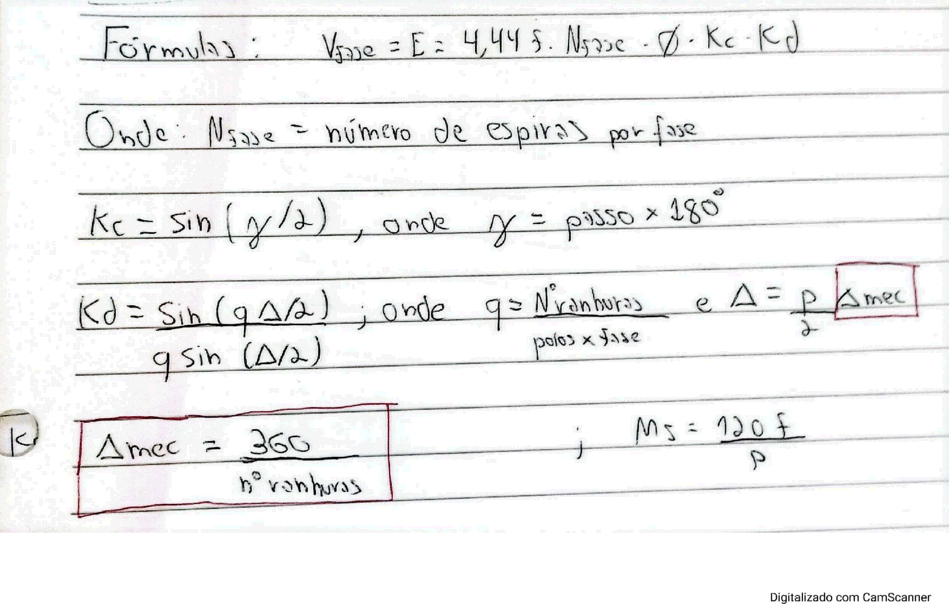 Fórmulas: Vfase = E = 4,44 f. Nfase . Ø . Kc . Kd
Onde: Nfase = número de espiras por fase
Kc = sin(γ/2), onde γ = passo × 180°
Kd = sin(qΔ/2) / q sin (Δ/2) ; onde q = N° ranhuras / polos x fase e Δ = p/2 Δmec
K
Δmec = 360 / n° ranhuras ; Ms = 120 f / p
Digitalizado com CamScanner